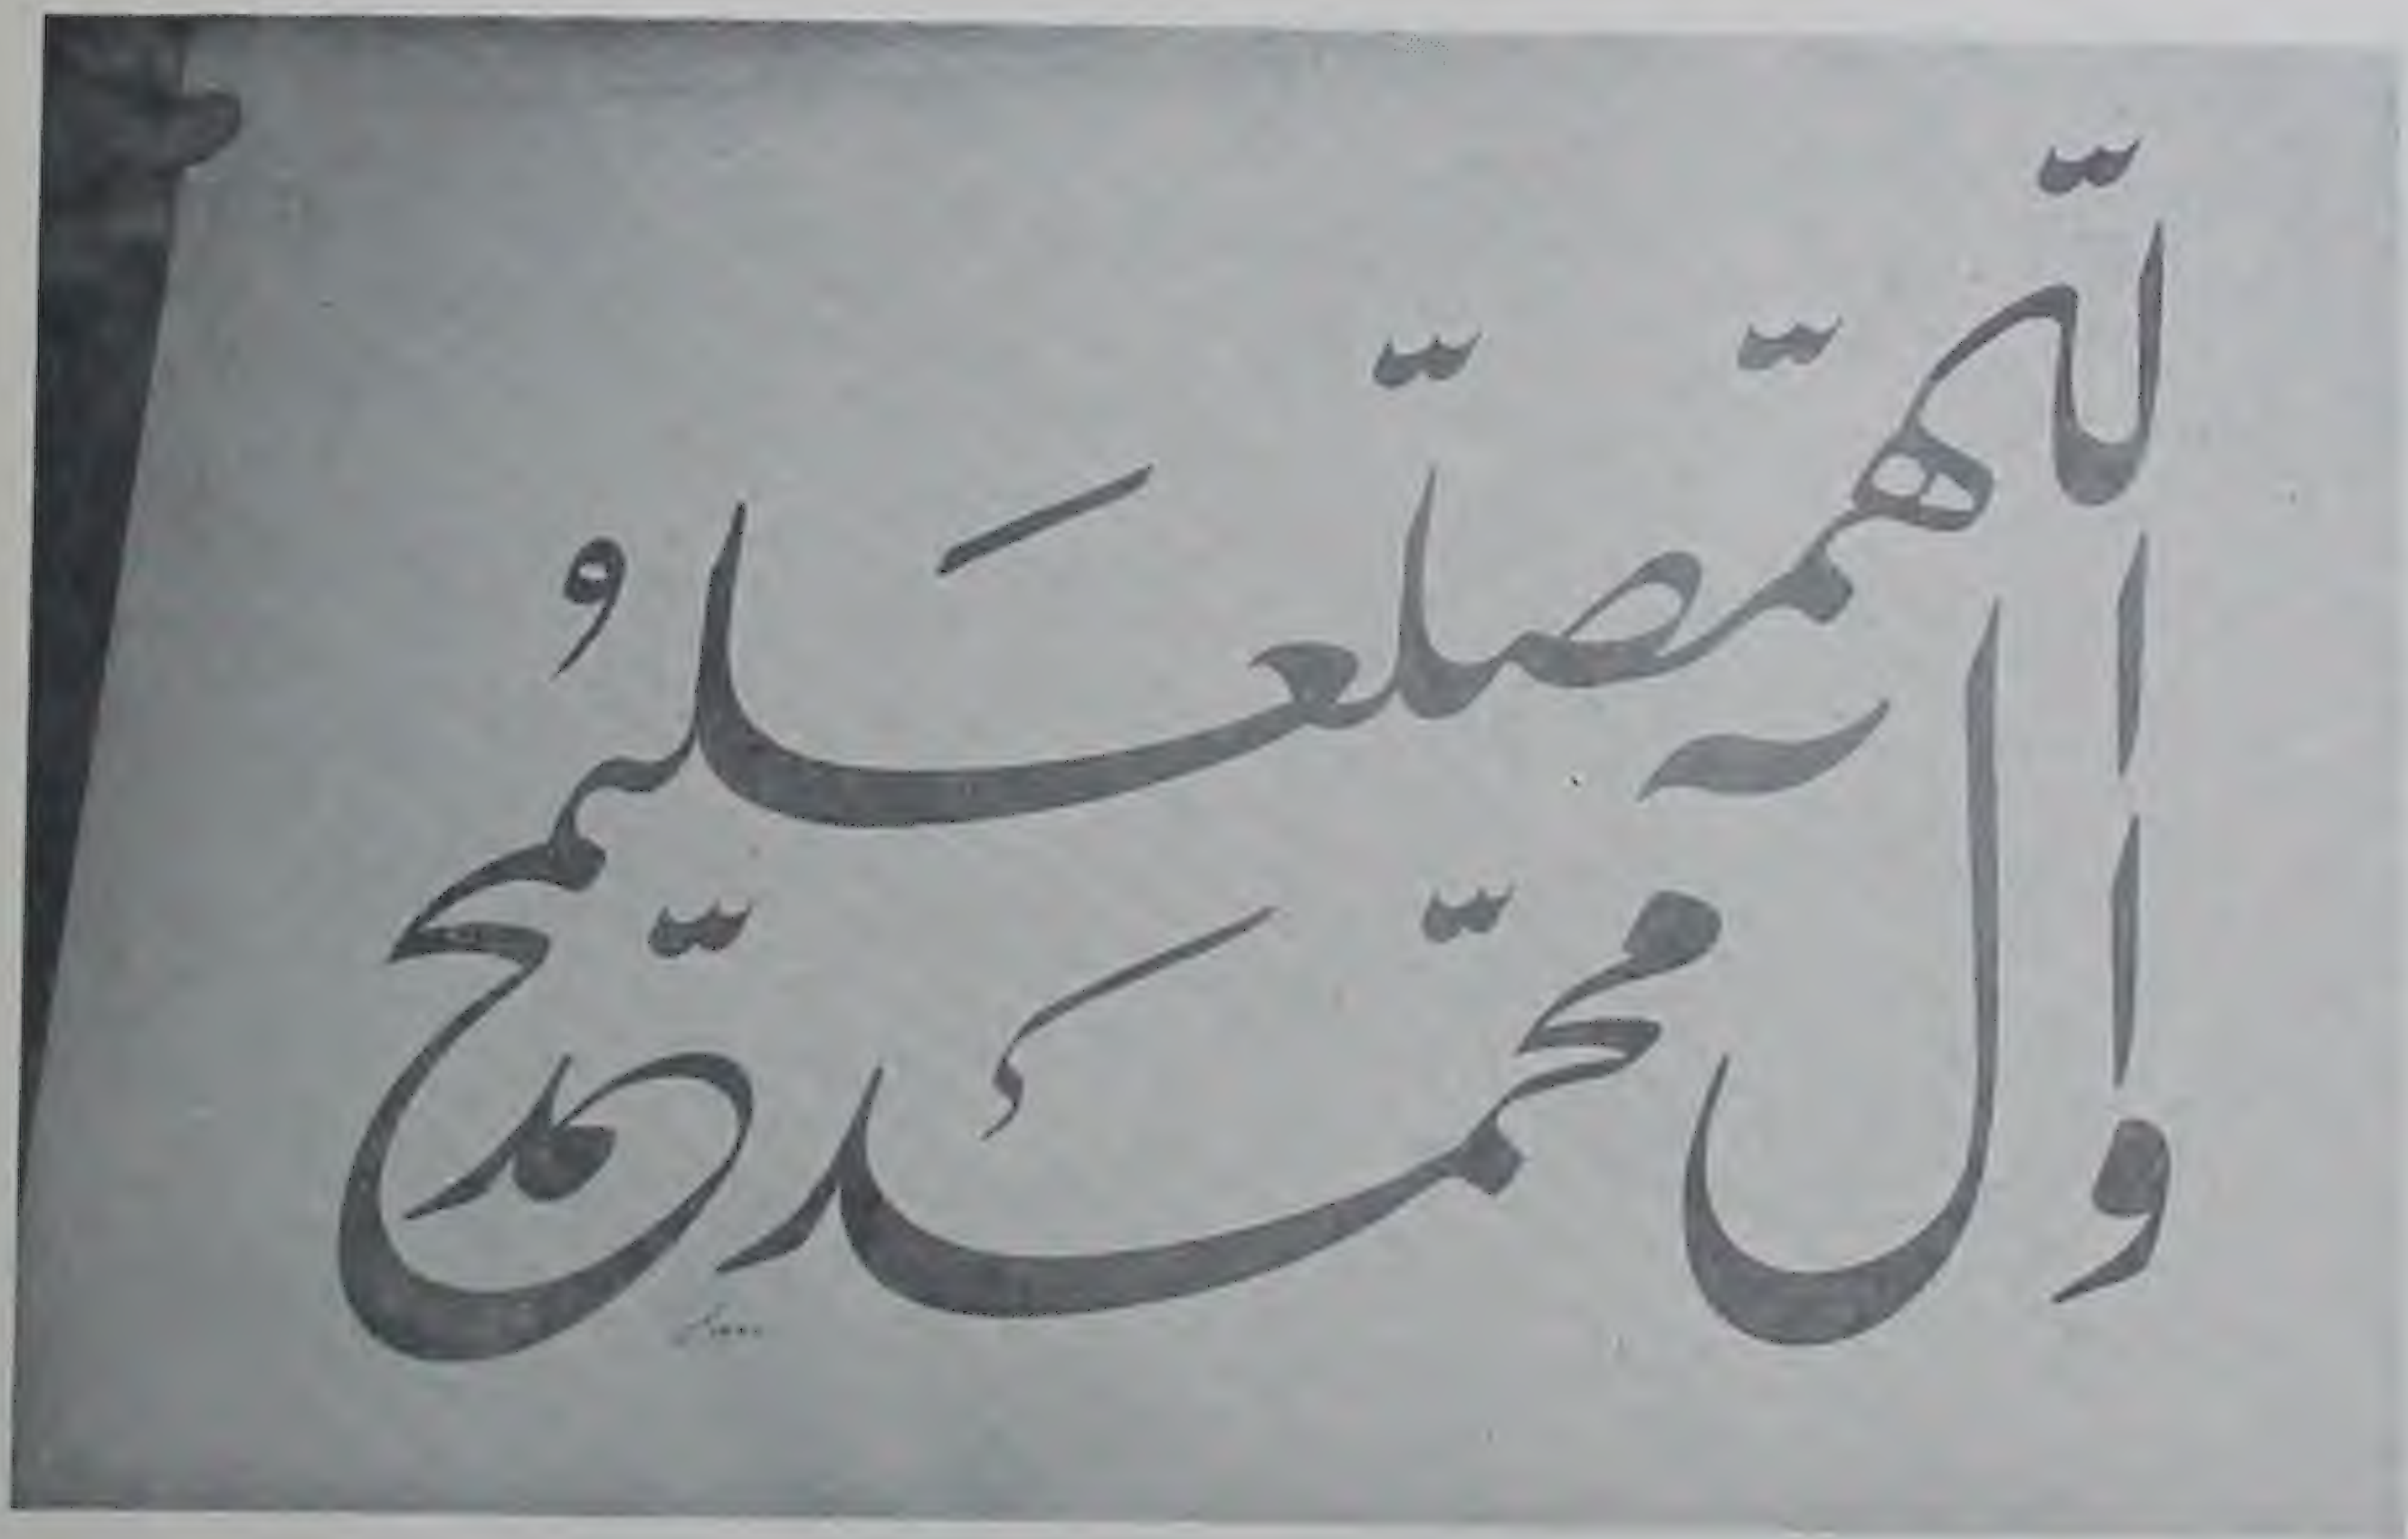 اللّهمّ صلّ علی محمّد
و آل محمّد